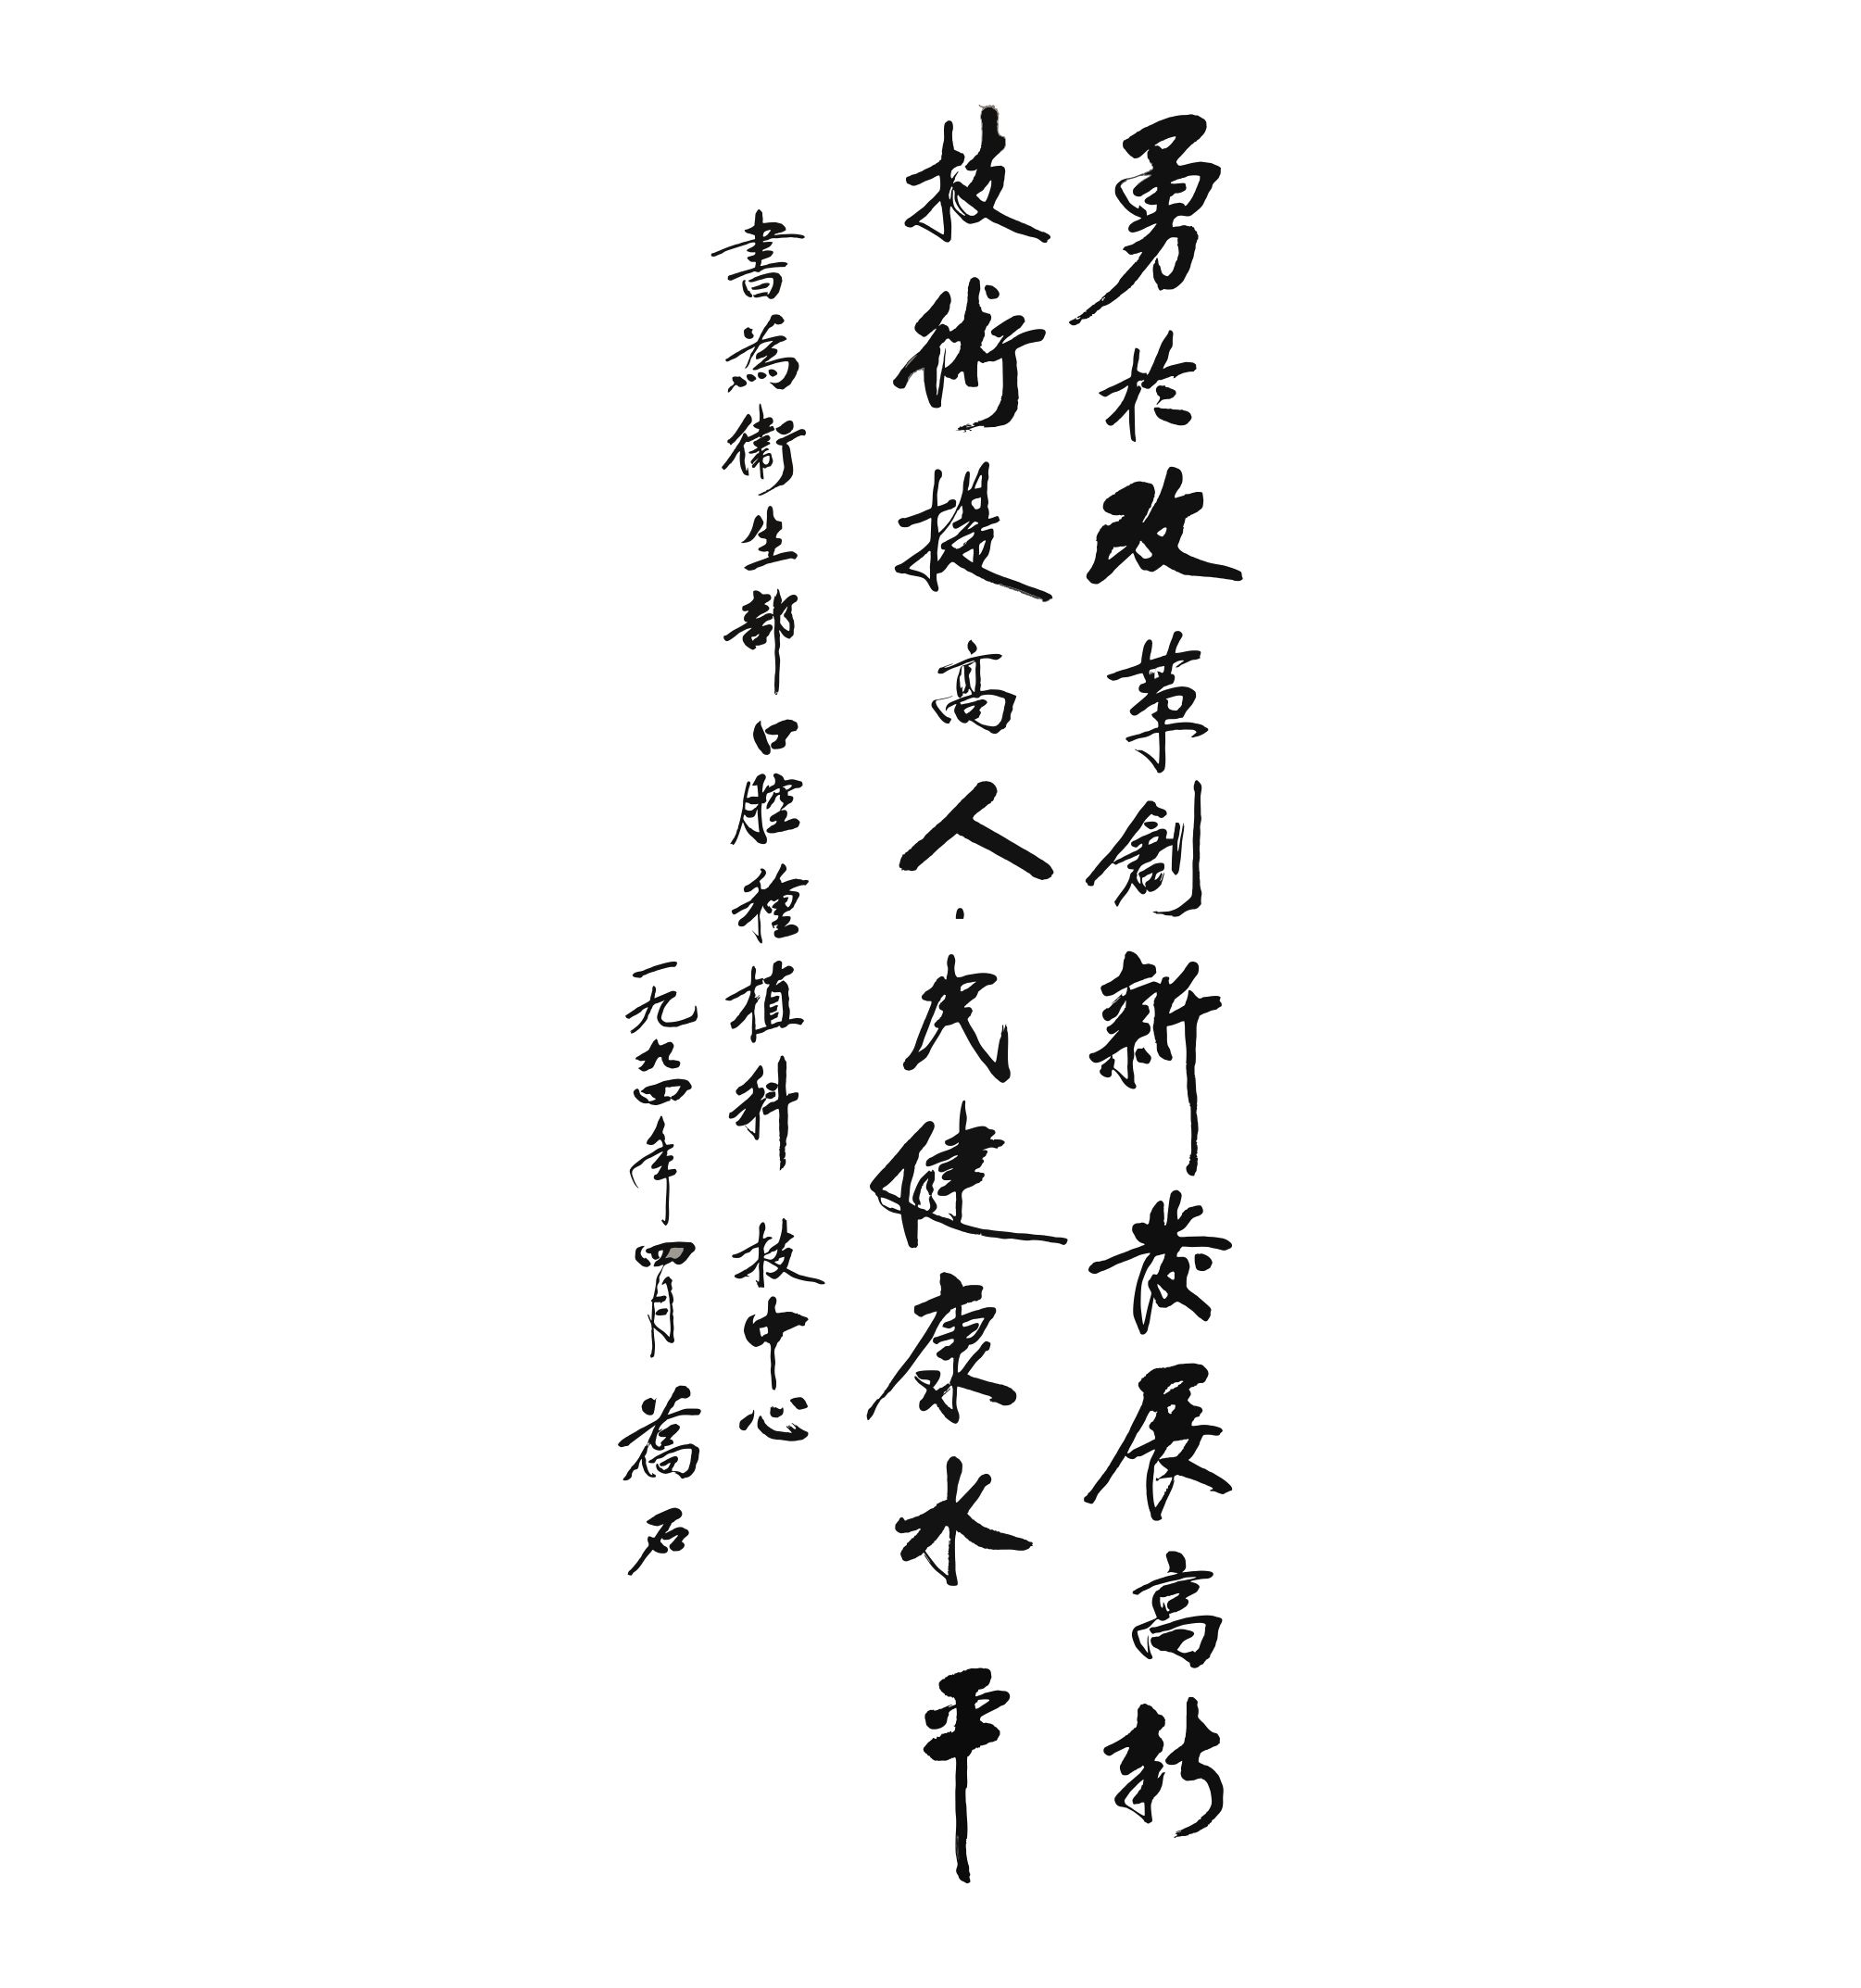 勇於改革創新發展高新
技術提高人民健康水平
書為衛生部口腔種植科技中心
一九九四年四月喬石